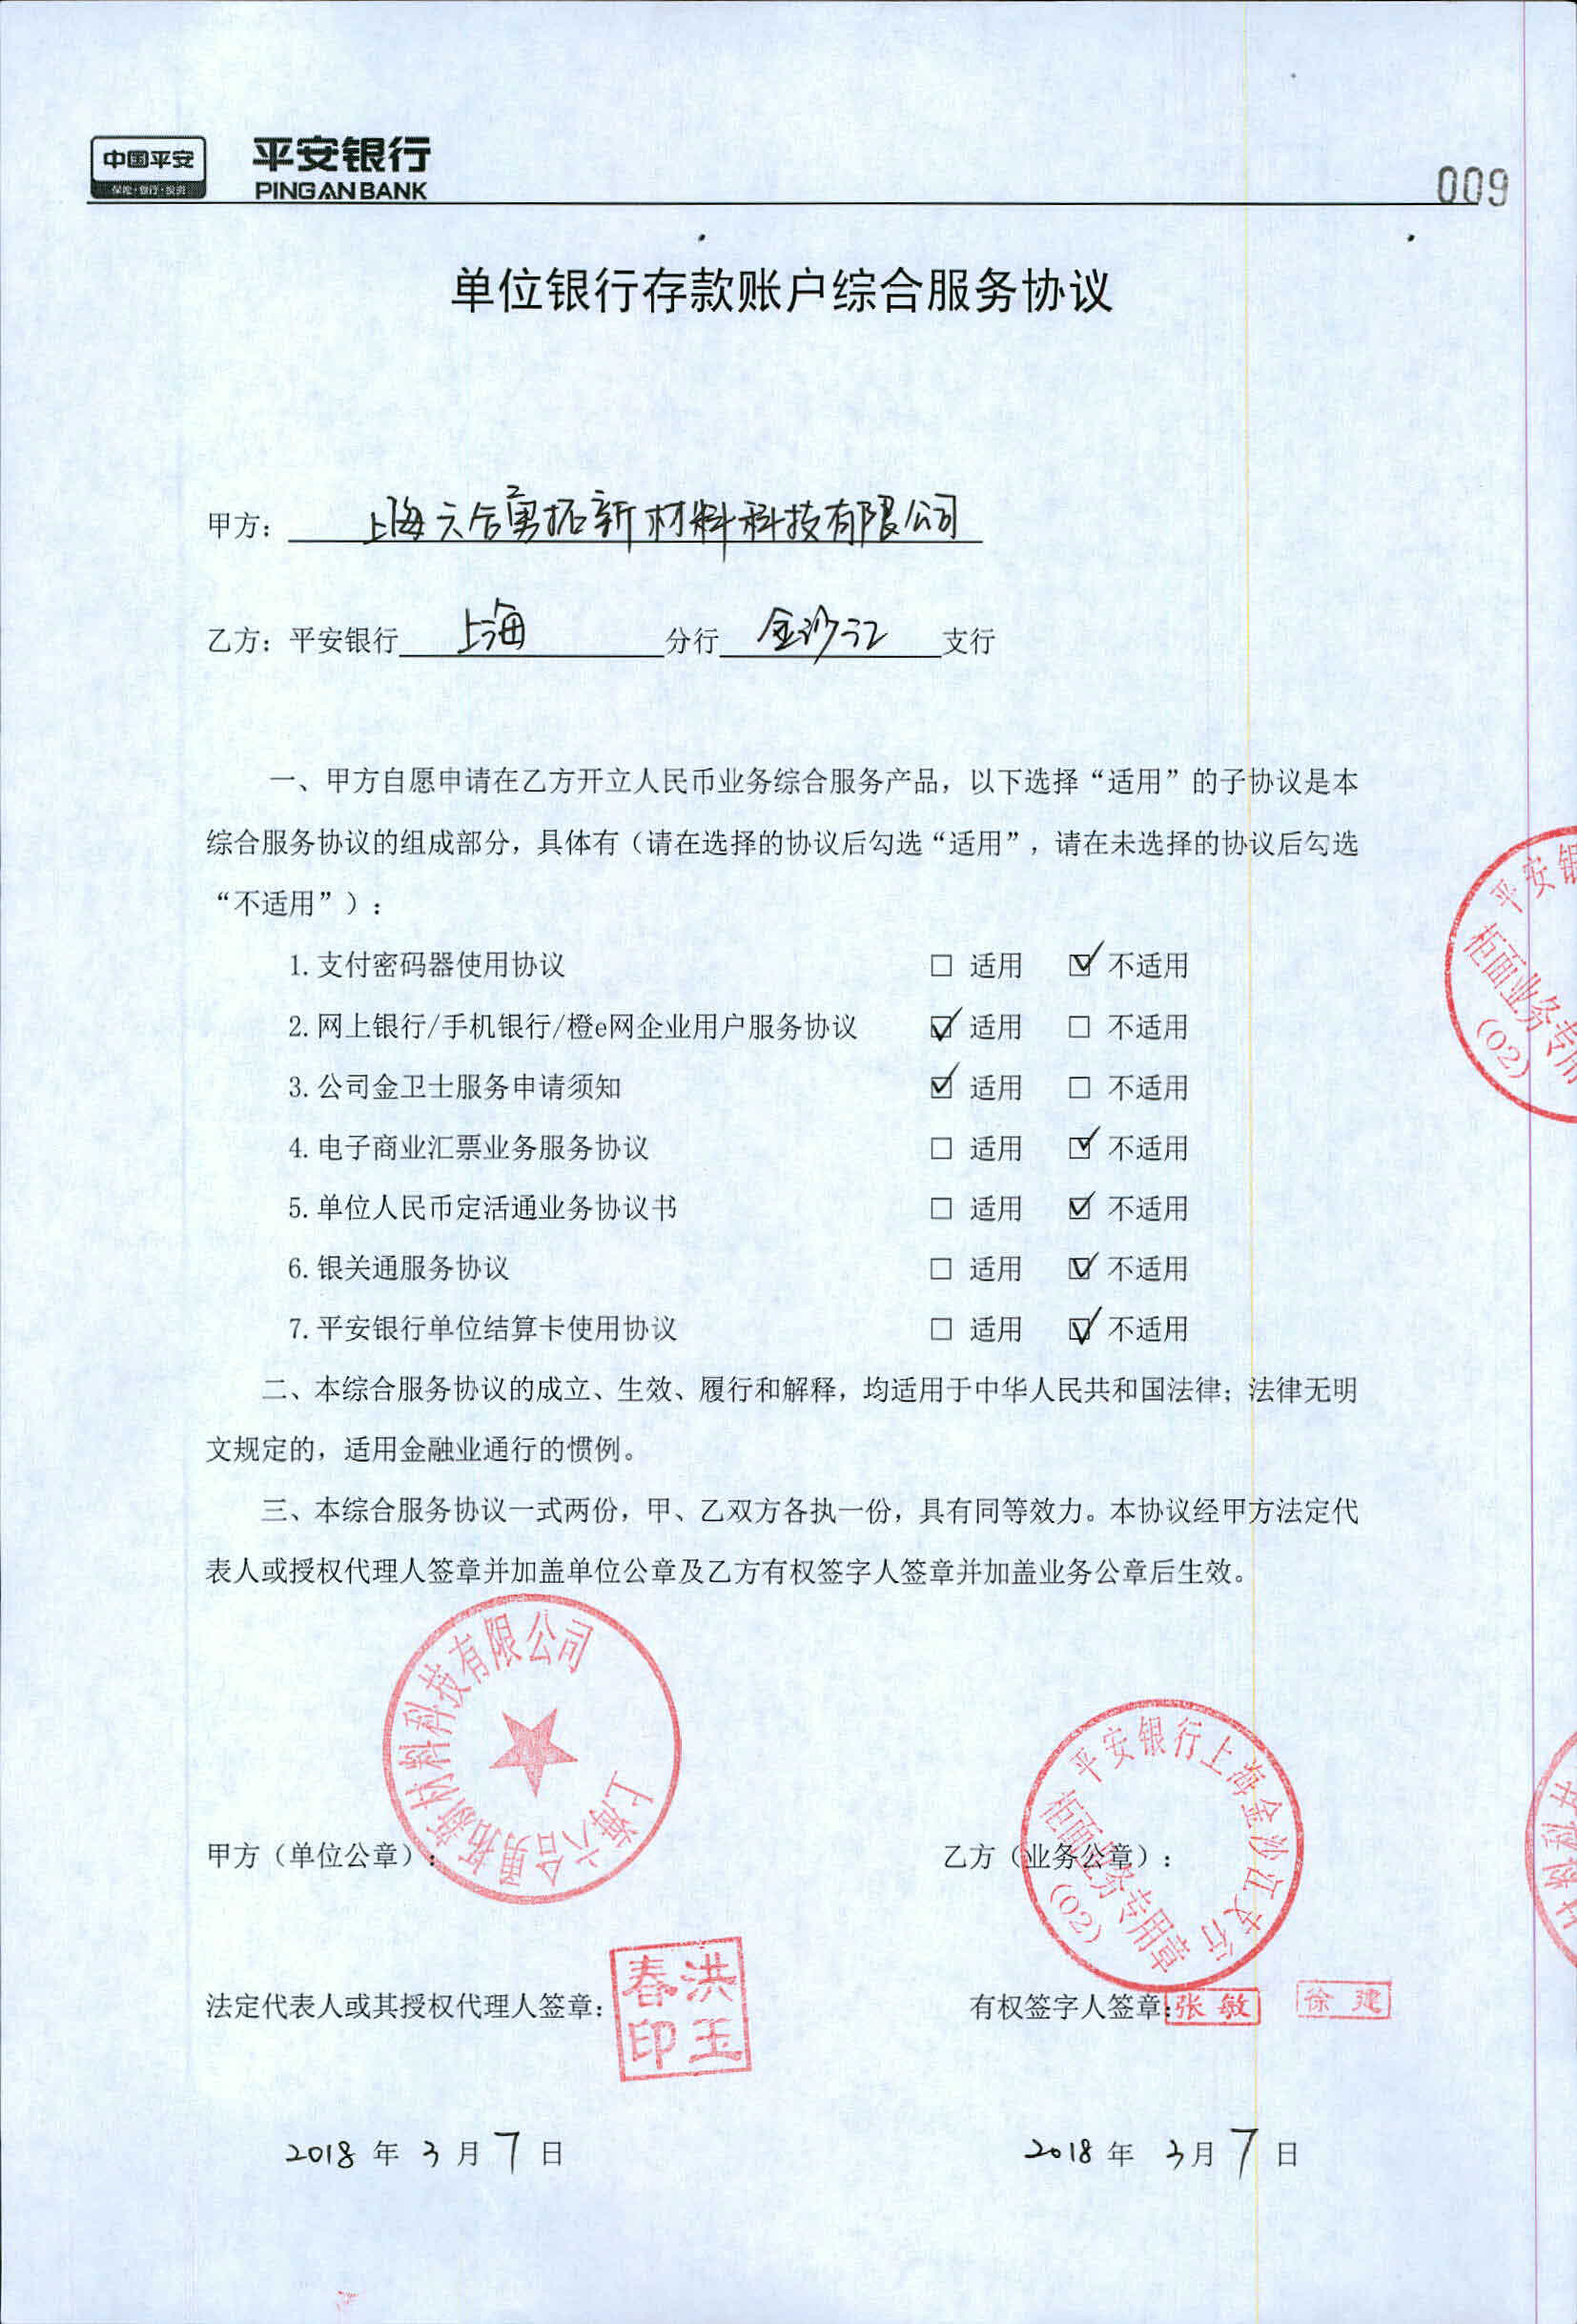 中国平安
保险·银行·投资
平安银行
PINGAN BANK
009
单位银行存款账户综合服务协议
甲方：上海六合勇拓新材料科技有限公司
乙方：平安银行 上海 分行 金沙江 支行
一、甲方自愿申请在乙方开立人民币业务综合服务产品，以下选择“适用”的子协议是本
综合服务协议的组成部分，具体有（请在选择的协议后勾选“适用”，请在未选择的协议后勾选
“不适用”）：
1.支付密码器使用协议 □ 适用 ☑ 不适用
2.网上银行/手机银行/橙e网企业用户服务协议 ☑ 适用 □ 不适用
3.公司金卫士服务申请须知 ☑ 适用 □ 不适用
4.电子商业汇票业务服务协议 □ 适用 ☑ 不适用
5.单位人民币定活通业务协议书 □ 适用 ☑ 不适用
6.银关通服务协议 □ 适用 ☑ 不适用
7.平安银行单位结算卡使用协议 □ 适用 ☑ 不适用
二、本综合服务协议的成立、生效、履行和解释，均适用于中华人民共和国法律；法律无明
文规定的，适用金融业通行的惯例。
三、本综合服务协议一式两份，甲、乙双方各执一份，具有同等效力。本协议经甲方法定代
表人或授权代理人签章并加盖单位公章及乙方有权签字人签章并加盖业务公章后生效。
平安银
柜面业务专用
(02)
上海六合勇拓新材料科技有限公司
平安银行上海金沙江支行
柜面业务专用章
(02)
材料科技
甲方（单位公章）：
乙方（业务公章）：
法定代表人或其授权代理人签章：
洪玉春印
有权签字人签章：
张敏
徐建
2018 年 3 月 7 日
2018 年 3 月 7 日